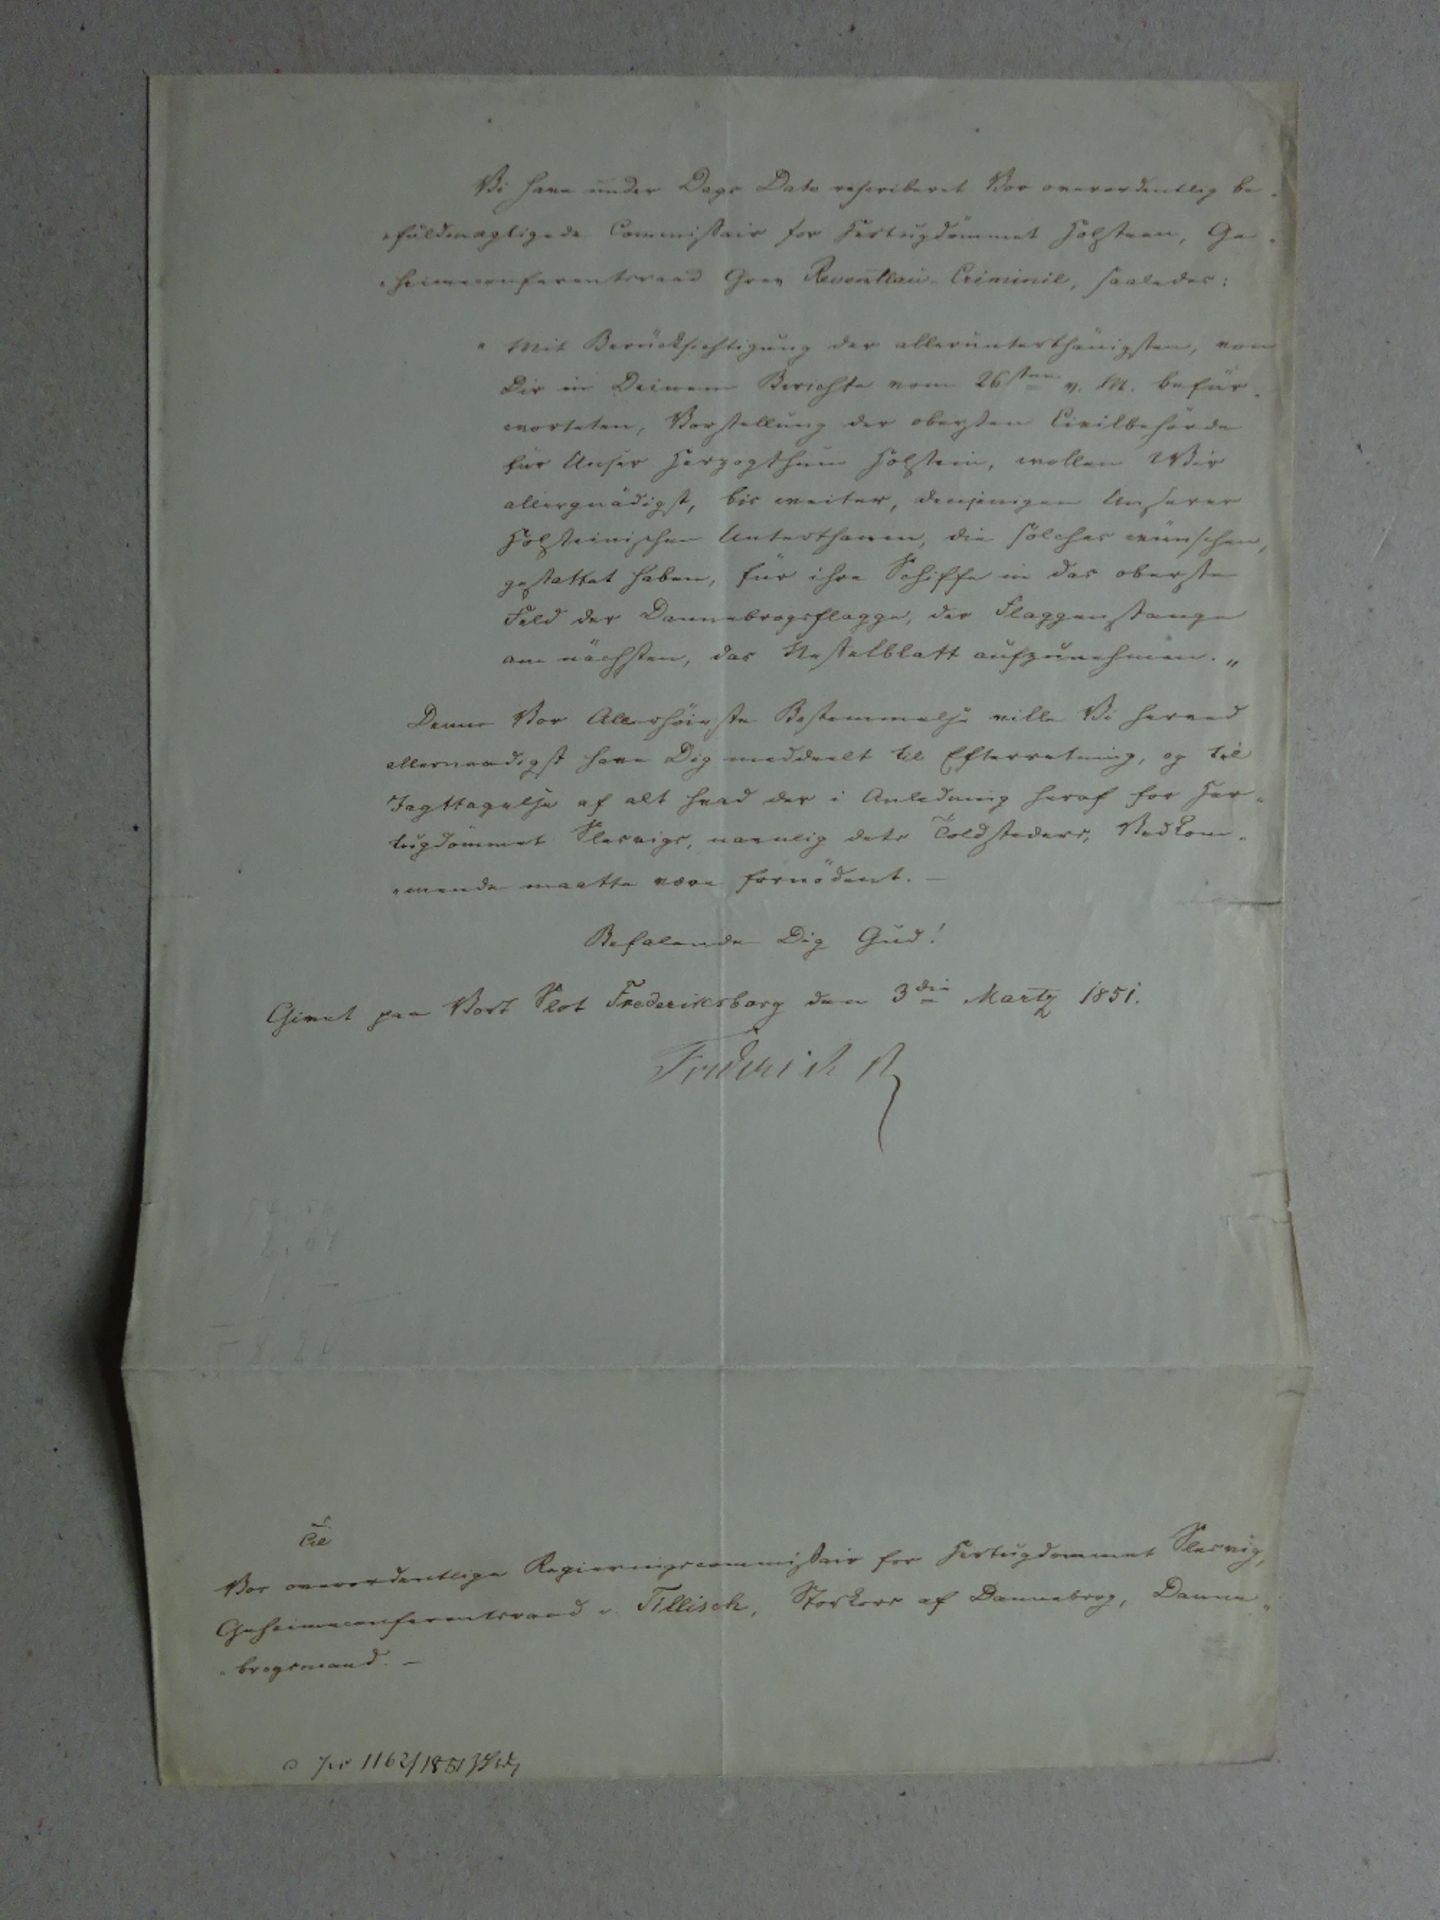 Vi have under Dags Dato rescriberet Vor overordentlig be-
-fuldmægtigede Commissair for Hertugdömmet Holsteen, Ge-
-heimeconferentsraad Grev Reventlau-Criminil, saaledes:
"Mit Berücksichtigung der allerunterthänigsten, von
Dir in Deinem Berichte vom 26sten v. M. befür-
worteten, Vorstellung der obersten Civilbehörde
für Unser Herzogthum Holstein, wollen Wir
allergnädigst, bis weiter, denjenigen Unserer
Holsteinischen Unterthanen, die solches wünschen,
gestattet haben, für ihre Schiffe in das oberste
Feld der Dannebrogsflagge, der Flaggenstange
am nächsten, das Nesselblatt aufzunehmen."
Denne Vor Allerhöieste Bestemmelse ville Vi herved
allernaadigst have Dig meddeelt til Efterretning, og til
Iagttagelse af alt hvad der i Anledning heraf for Her-
tugdömmet Slesvigs, navnlig dets Toldsteders, Vedkom-
-mende maatte være fornödent. —
Befalende Dig Gud!
Givet paa Vort Slot Frederiksborg den 3die Martz 1851.
Frederik R
Til
Vor overordentlige Regieringscommissair for Hertugdömmet Slesvig,
Geheimeconferentsraad v. Tillisch, Storkors af Dannebrog, Danne-
-brogsmand. —
1162/1851